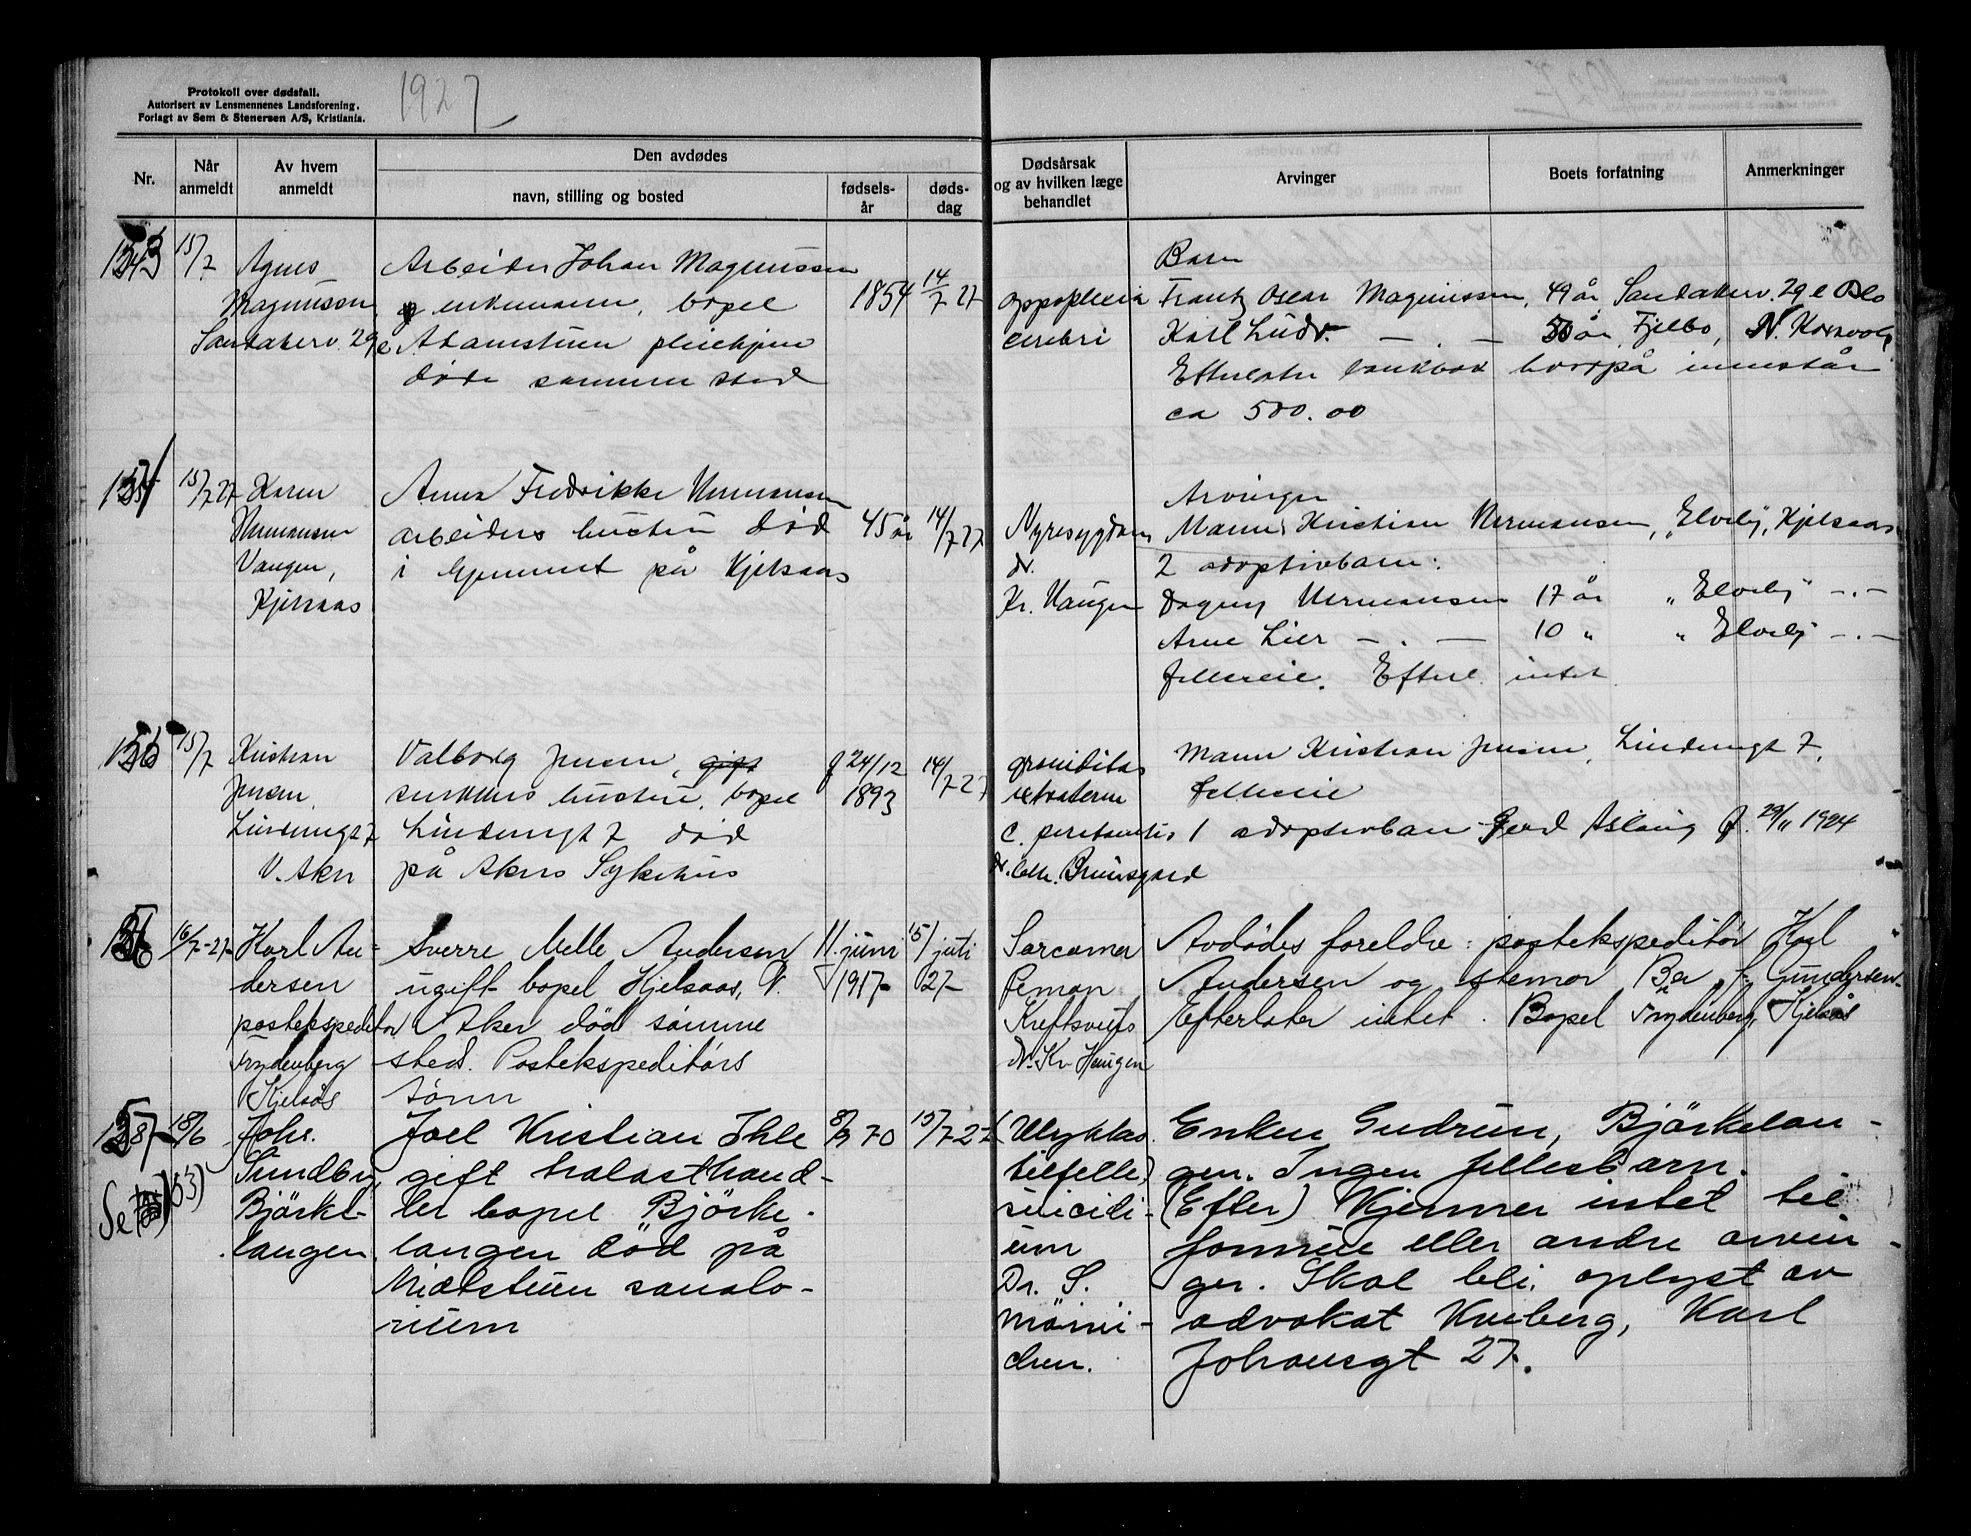 Protokoll over dødsfall.
Autorisert av Lensmennenes Landsforening.
Forlagt av Sem & Stenersen A/S, Kristiania.
1927
Nr.
Når anmeldt
Av hvem anmeldt
Den avdødes
navn, stilling og bosted
fødsels-
år
døds-
dag
Dødsårsak
og av hvilken læge
behandlet
Arvinger
Boets forfatning
Anmerkninger
15/7
Agnes
Magnussen
Sandakerv. 29
e
Arbeider Johan Magnussen
enkemann, bopel
Adamstuen pleiehjem
døde samme sted
1854
14/7 27
appoplecia
cerebri
Barn
Frantz Oscar Magnussen, 49 år, Sandakerv. 29 e Oslo
Karl Ludv. — . — 50 år, Fjelbo, N.
Efterlater bankbok hvorpå innestår
ca 500.00
154
15/7 27
Karen
Hermansen
Vangen,
Kjelsaas
Anna Fredrikke Hermansen
arbeiders hustru død
i hjemmet på Kjelsaas
45 år
14/7 27
Nyresygdom
dr.
Kr. Haugen
Arvinger
Mann: Kristian Hermansen, "Elveby, Kjelsaas
2 adoptivbarn:
Dagny Hermansen 17 år " Elveby" -.-
Arne Lier — . — 10 " " Elveby -.-
felleseie. Efterl. intet
155
15/7
Kristian
Jensen,
Lindemgt 7
V. Aker
Valborg Jensen, gift
snekkers hustru, bopel
Lindemgt 7 død
på Akers Sykehus
f 24/12
1893
14/7-27
graviditas
extrauterin
c.
dr. Chr. Bruusgaard
Mann Kristian Jensen, Lindemgt 7,
felleseie
1 adoptivbarn Gerd Aslaug f. 29/11 1924
156
16/7-27-
Karl An-
dersen
postekspeditør
Frydenberg
Kjelsås
Sverre Melle Andersen
ugift bopel Kjelsaas, V.
Aker død samme
sted. Postekspeditørs
sønn
11. juni
1917-
15/juli
27-
Sarcomer
Femon
Kreftsvuls
Dr. Kr Haugen
Avdødes foreldre: postekspeditør Karl
Andersen og stemor Bea f. Gundersen.
Efterlater intet. Bopel Frydenberg, Kjelsås
157
18/6
Johs.
Sundby,
Bjørke-
langen.
Se 153)
Joel Kristian Ihle
gift trelasthand-
ler bopel Bjørke-
langen død på
Mæsteruen sanato-
rium
8/9 70
15/7 27
(Ulykkes
tilfelle)
suicidi-
um
Dr. S.
Møini-
chen.
Enken Gudrun, Bjørkelan-
gen. Ingen fellesbarn.
(Efter) Kjenner intet til
formue eller andre arvin-
ger. Skal bli oplyst av
advokat Kveberg, Karl
Johansgt 27.